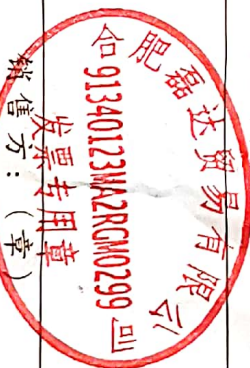 合肥磊达贸易有限公司
91340123MA2RGM0299
发票专用章
销售方：（章）